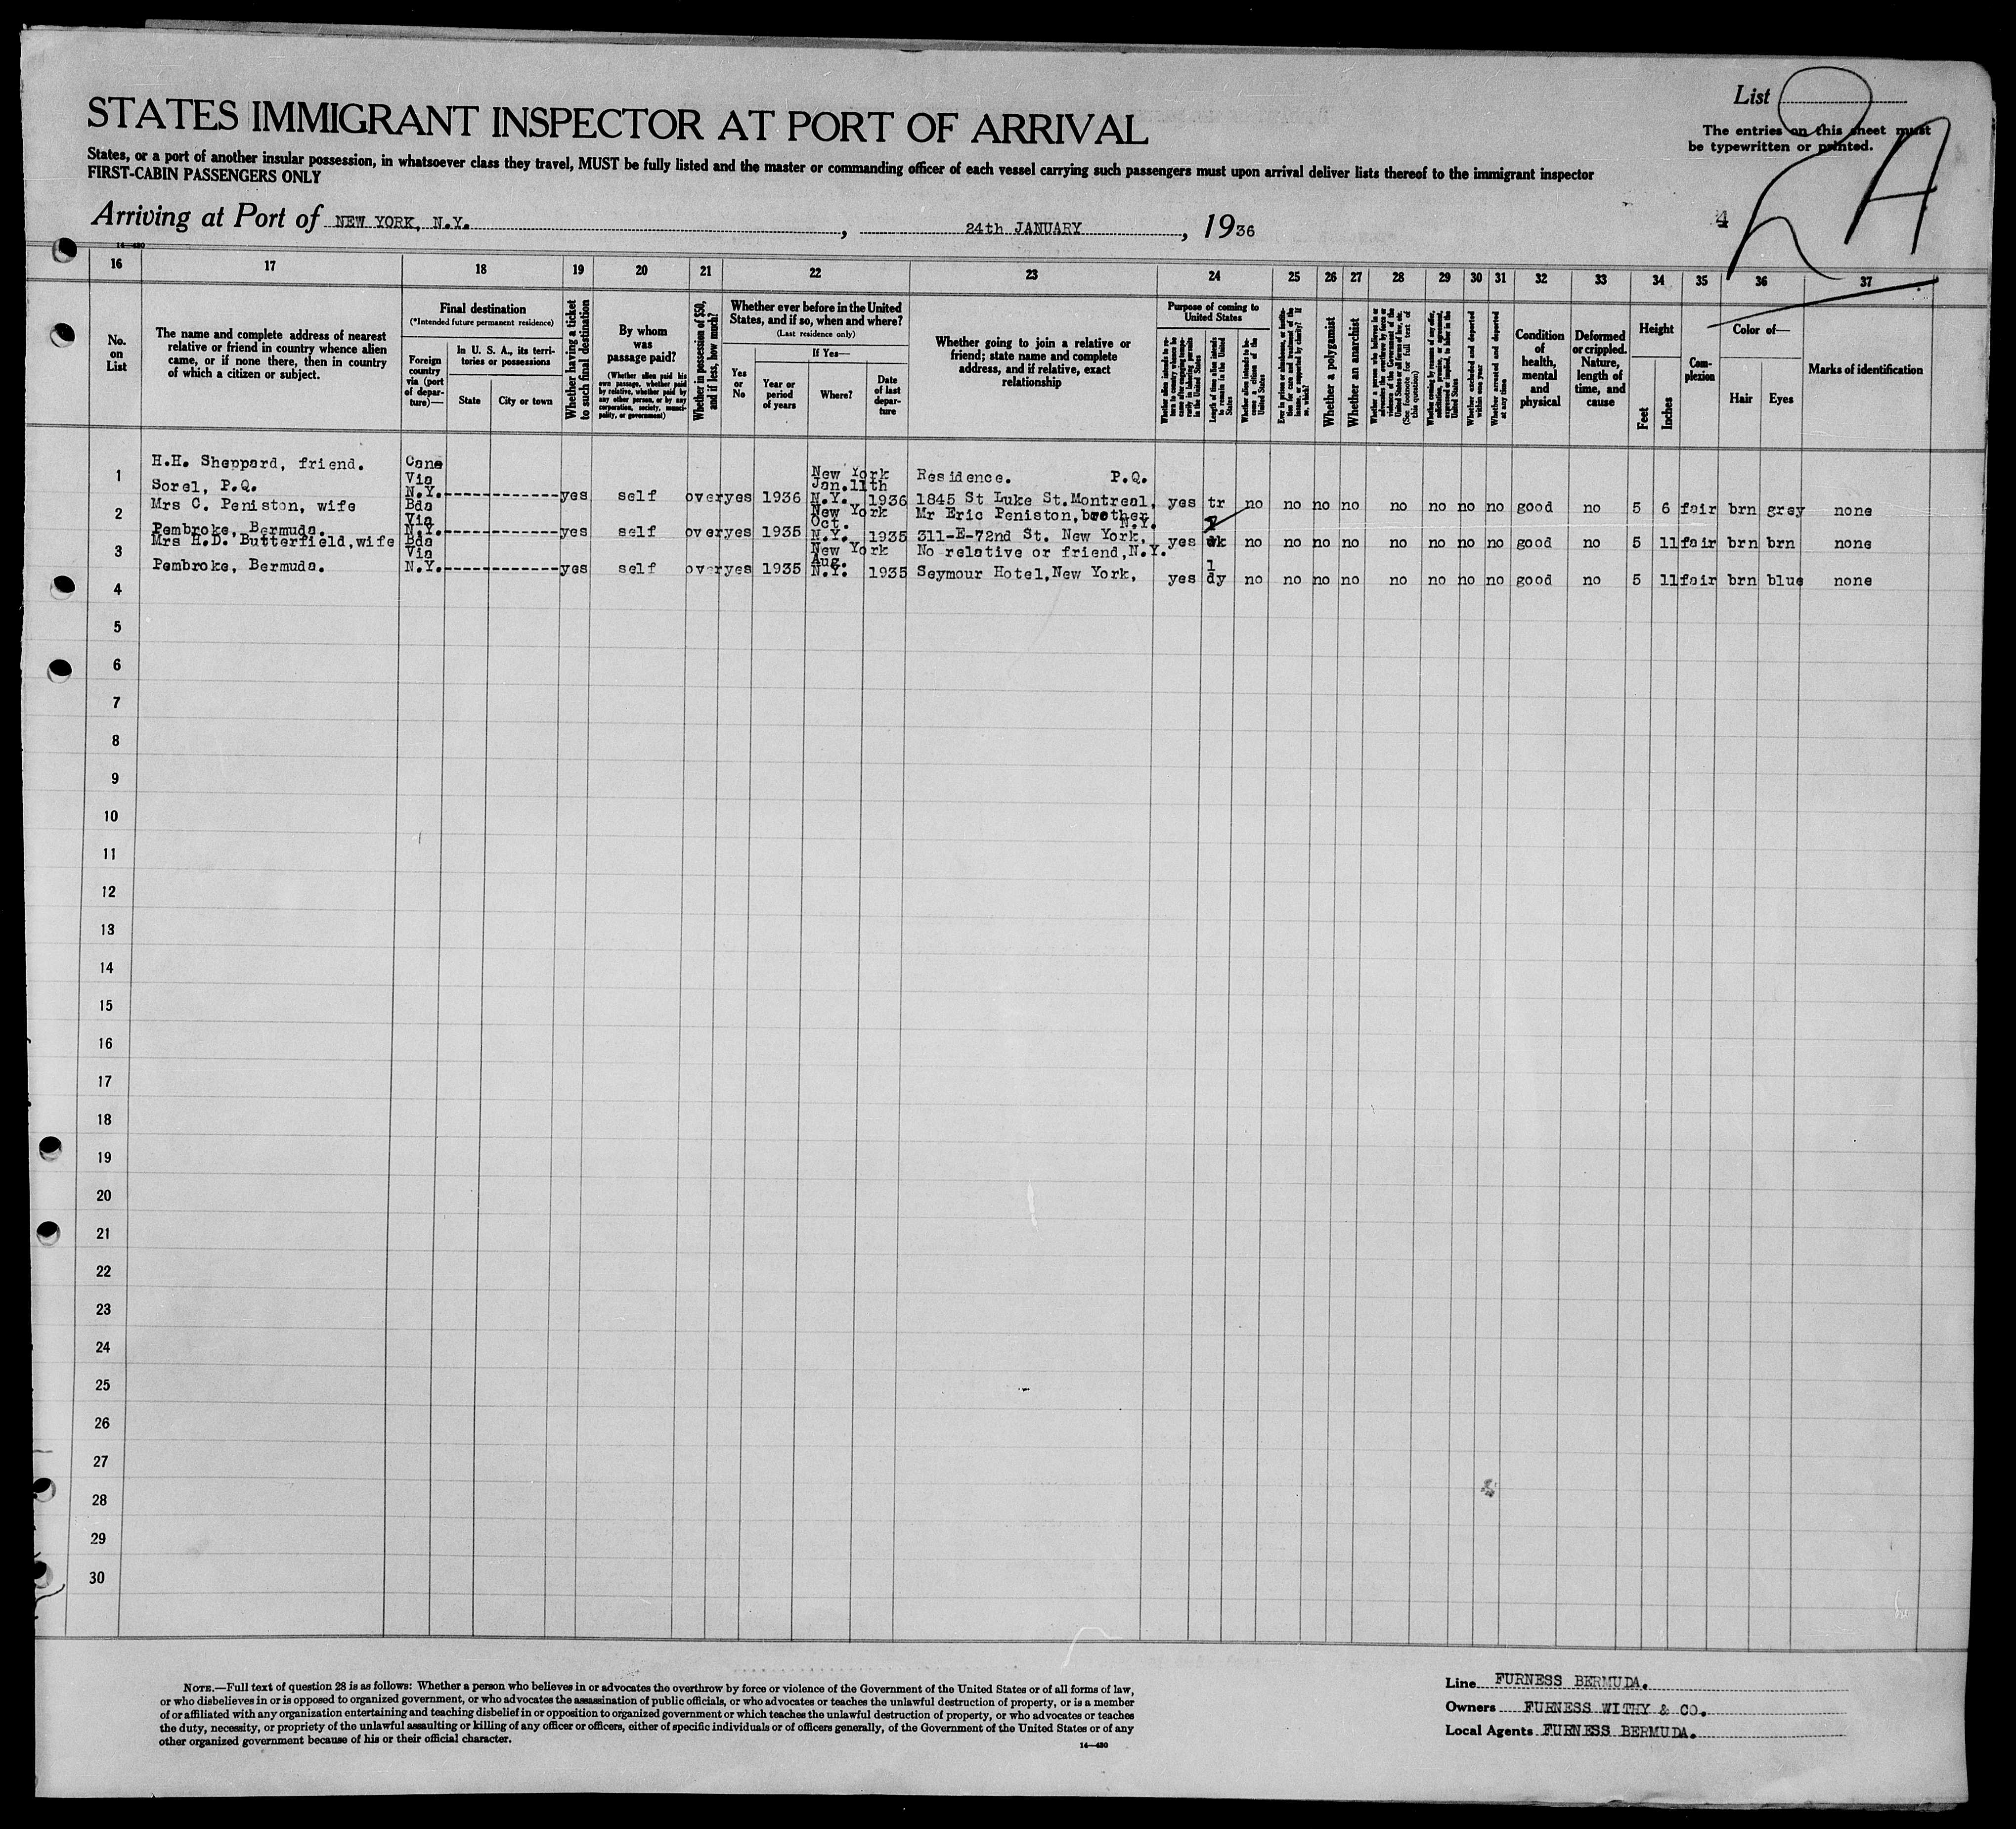 List
The entries on this sheet must
be typewritten or printed.
2A
STATES IMMIGRANT INSPECTOR AT PORT OF ARRIVAL
States, or a port of another insular possession, in whatsoever class they travel, MUST be fully listed and the master or commanding officer of each vessel carrying such passengers must upon arrival deliver lists thereof to the immigrant inspector
FIRST-CABIN PASSENGERS ONLY
Arriving at Port of NEW YORK, N.Y. , 24th JANUARY , 1936
4
14—480
16 17 18 19 20 21 22 23 24 25 26 27 28 29 30 31 32 33 34 35 36 37
No. on List
The name and complete address of nearest relative or friend in country whence alien came, or if none there, then in country of which a citizen or subject.
Final destination
(*Intended future permanent residence)
Foreign country via (port of departure)—
In U. S. A., its territories or possessions
State
City or town
Whether having a ticket to such final destination
By whom was passage paid?
(Whether alien paid his own passage, whether paid by relative, whether paid by any other person, or by any corporation, society, municipality, or government)
Whether in possession of $50, and if less, how much?
Whether ever before in the United States, and if so, when and where?
(Last residence only)
Yes or No
If Yes—
Year or period of years
Where?
Date of last departure
Whether going to join a relative or friend; state name and complete address, and if relative, exact relationship
Purpose of coming to United States
Length of time alien intends to remain in the United States
Whether alien intends to become a citizen of the United States
Whether a polygamist
Whether an anarchist
(See footnote for full text of this question)
Whether excluded and deported within one year
Whether arrested and deported at any time
Condition of health, mental and physical
Deformed or crippled. Nature, length of time, and cause
Height
Feet
Inches
Complexion
Color of—
Hair
Eyes
Marks of identification
H.H. Sheppard, friend. Cana
1 Via New York Residence. P.Q.
Sorel, P.Q. N.Y. yes self over yes 1936 Jan.11th N.Y. 1936 1845 St Luke St.Montreal, yes tr no no no no no no no no good no 5 6 fair brn grey none
Mrs C. Peniston, wife Bda
2 Via New York Oct. Mr Eric Peniston,brother N.Y.
Pembroke, Bermuda. N.Y. yes self over yes 1935 N.Y. 1935 311-E-72nd St. New York, yes wk no no no no no no no no good no 5 11 fair brn brn none
Mrs H.D. Butterfield,wife Bda
3 Via New York Aug. No relative or friend,N.Y. 1
Pembroke, Bermuda. N.Y. yes self over yes 1935 N.Y. 1935 Seymour Hotel,New York, yes dy no no no no no no no no good no 5 11 fair brn blue none
4
5
6
7
8
9
10
11
12
13
14
15
16
17
18
19
20
21
22
23
24
25
26
27
28
29
30
NOTE.—Full text of question 28 is as follows: Whether a person who believes in or advocates the overthrow by force or violence of the Government of the United States or of all forms of law,
or who disbelieves in or is opposed to organized government, or who advocates the assassination of public officials, or who advocates or teaches the unlawful destruction of property, or is a member
of or affiliated with any organization entertaining and teaching disbelief in or opposition to organized government or which teaches the unlawful destruction of property, or who advocates or teaches
the duty, necessity, or propriety of the unlawful assaulting or killing of any officer or officers, either of specific individuals or of officers generally, of the Government of the United States or of any
other organized government because of his or their official character.
14—480
Line FURNESS BERMUDA.
Owners FURNESS WITHY & CO.
Local Agents FURNESS BERMUDA.